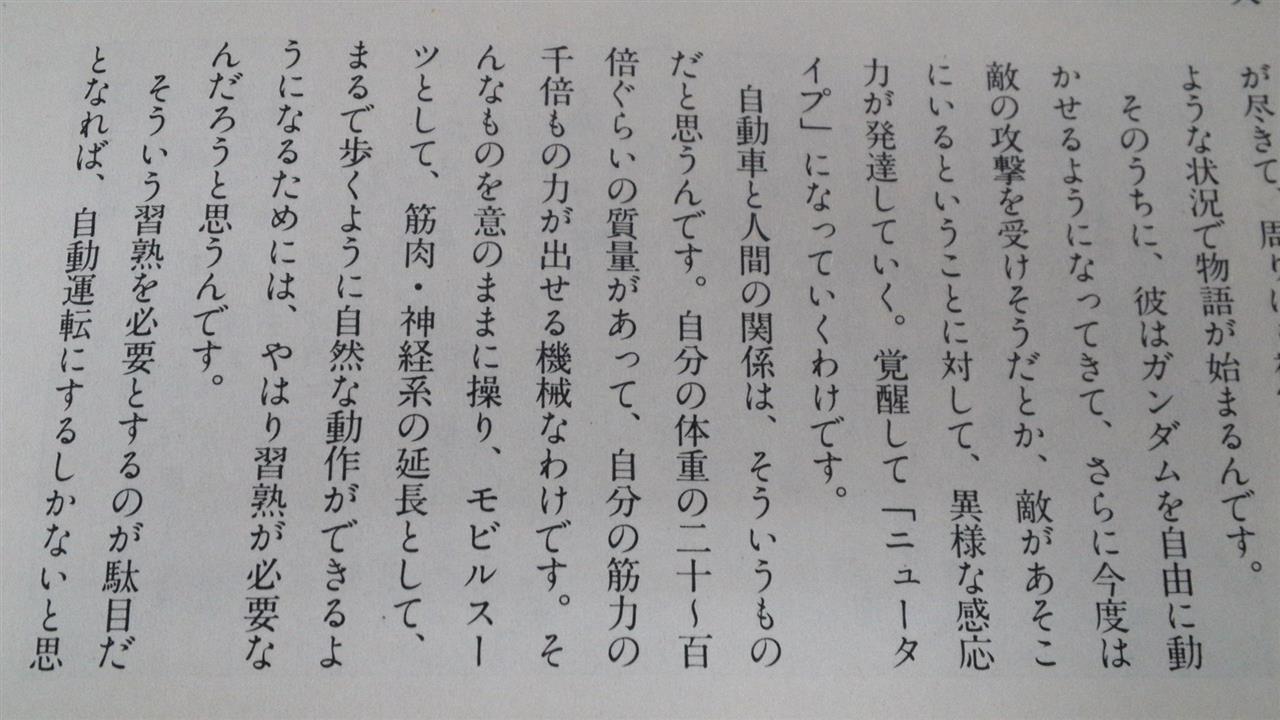 が尽きて、周りに
ような状況で物語が始まるんです。
そのうちに、彼はガンダムを自由に動
かせるようになってきて、さらに今度は
敵の攻撃を受けそうだとか、敵があそこ
にいるということに対して、異様な感応
力が発達していく。覚醒して「ニュータ
イプ」になっていくわけです。
自動車と人間の関係は、そういうもの
だと思うんです。自分の体重の二十〜百
倍ぐらいの質量があって、自分の筋力の
千倍もの力が出せる機械なわけです。そ
んなものを意のままに操り、モビルスー
ツとして、筋肉・神経系の延長として、
まるで歩くように自然な動作ができるよ
うになるためには、やはり習熟が必要な
んだろうと思うんです。
そういう習熟を必要とするのが駄目だ
となれば、自動運転にするしかないと思